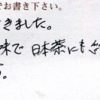 でお書き下さい。
きました。
味で日本茶にも
る。